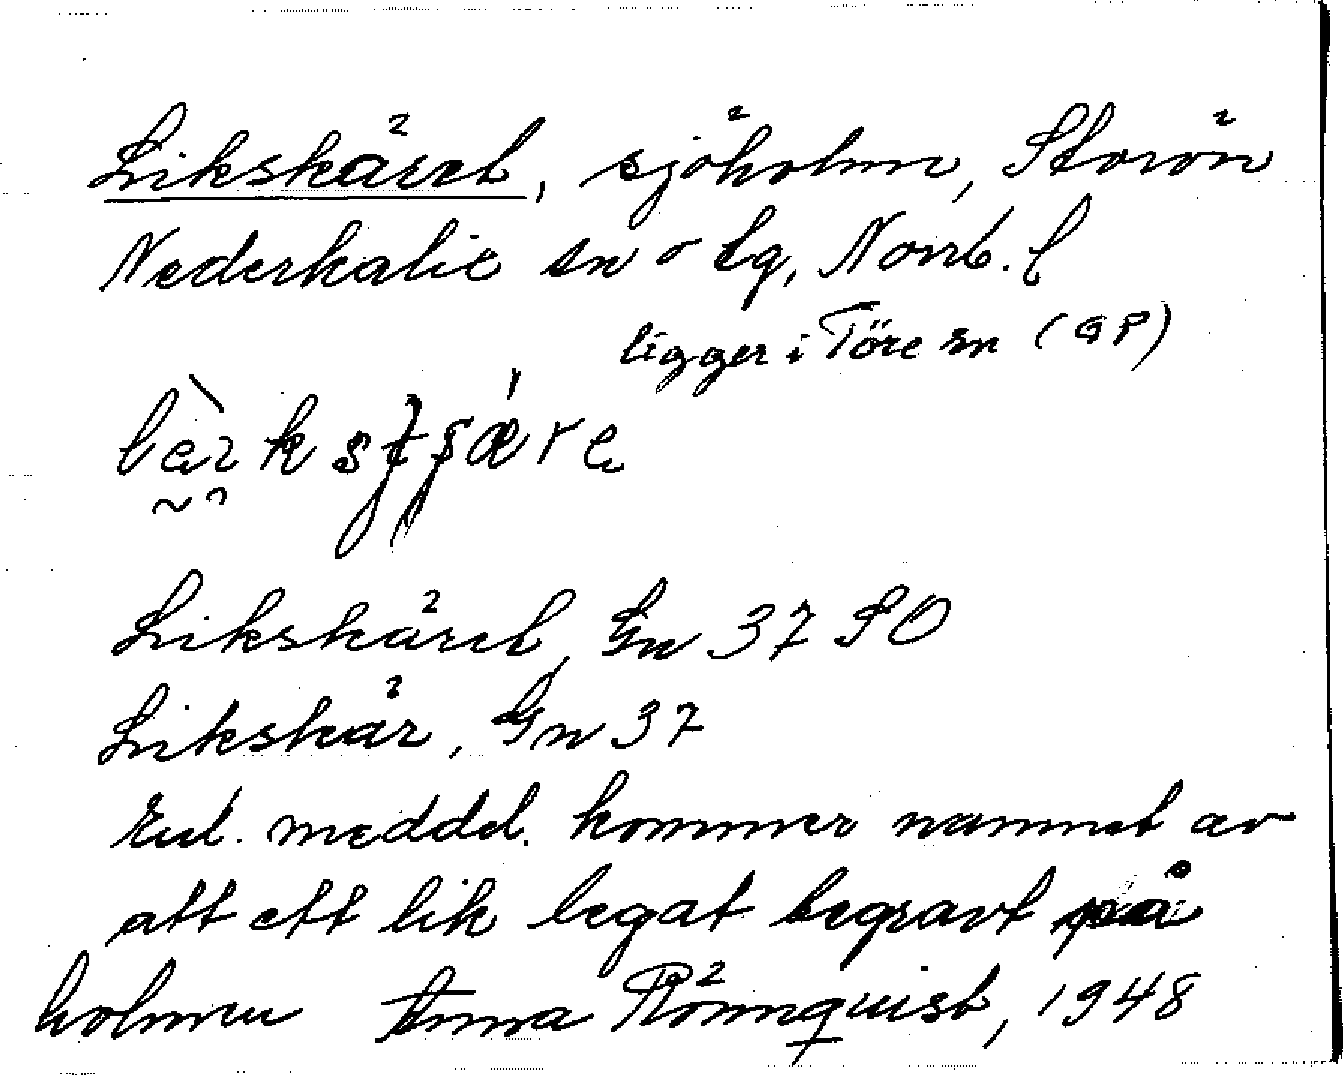 Likskäret, sjöholm, Storön
Nederkalix sn o tg, Norrb. l
ligger i Töre sn (GP)
Likskäret, Gn 37 SO
Likskär, Gn 37
Enl. meddel. kommer namnet av
att ett lik legat begravt på
holmen Anna Rönnquist, 1948